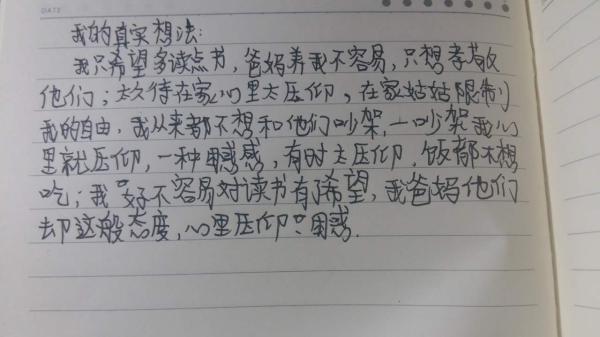 DATE
我的真实想法:
我只希望多读点书,爸妈养我不容易,只想孝敬
他们;太久待在家心里太压仰,在家姑姑限制
我的自由,我从来都不想和他们吵架,一吵架我心
里就压仰,一种困惑感,有时太压仰,饭都不想
吃;我"好不容易对读书有了希望,我爸妈他们
却这般态度,心里压仰"困惑.